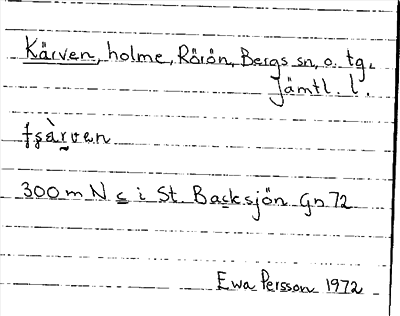 Kärven, holme, Rörön, Bergs sn, o. tg.
Jämtl. l.
300 m N c i St. Backsjön Gn 72
Ewa Persson 1972